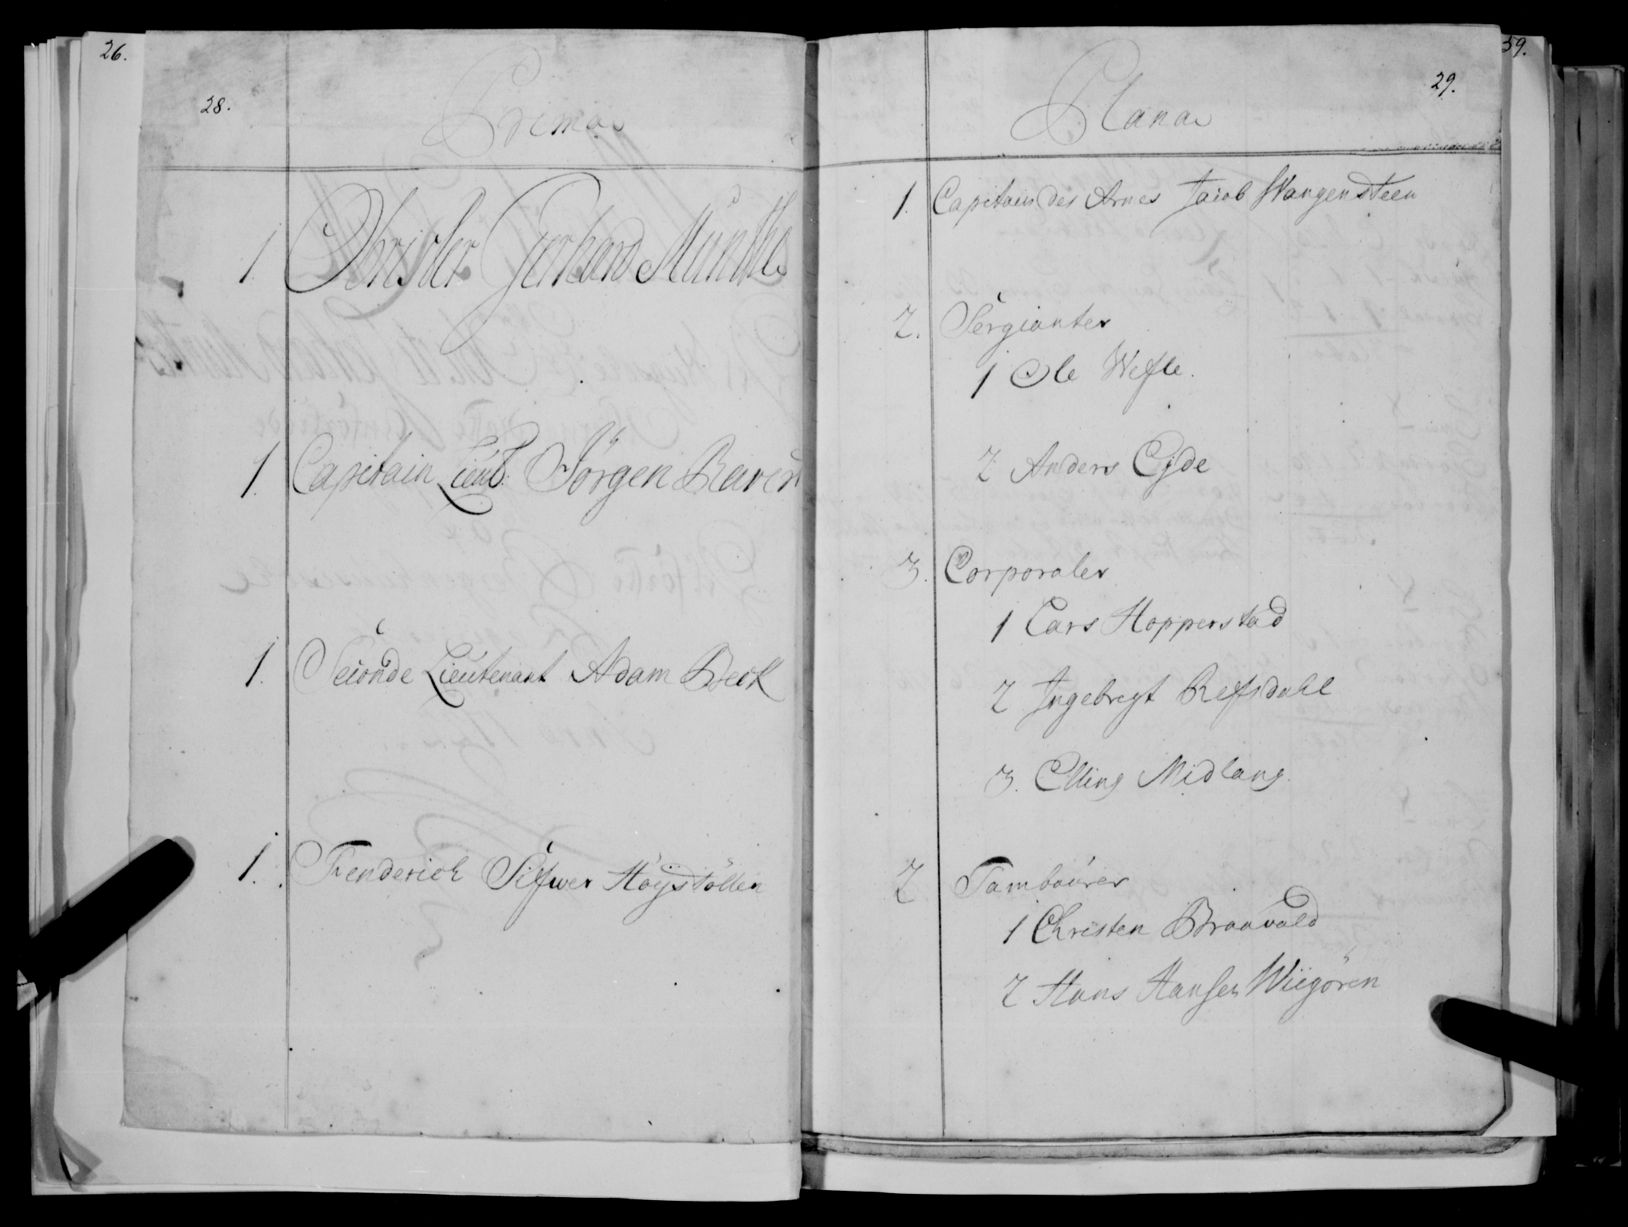 26.
28.
Prima
1 Obrister Gerhard Münthe
1. Capitain Lieut: Jörgen Raven
1. Seconde Lieutenant Adam Beck
1. Frenderich Sifwer Höystöllen
59.
29.
Plana
1. Capitain des Armes Jacob Wangensteen
2. Sergianter
1 Ole Wefle.
2 Anders Eyde
3. Corporaler
1 Lars Hopperstad
2 Ingebregt Refsdahl
3. Elling Midlang.
2 Tambourer
1 Christen Braavold
2 Hans Hansen Wiigören